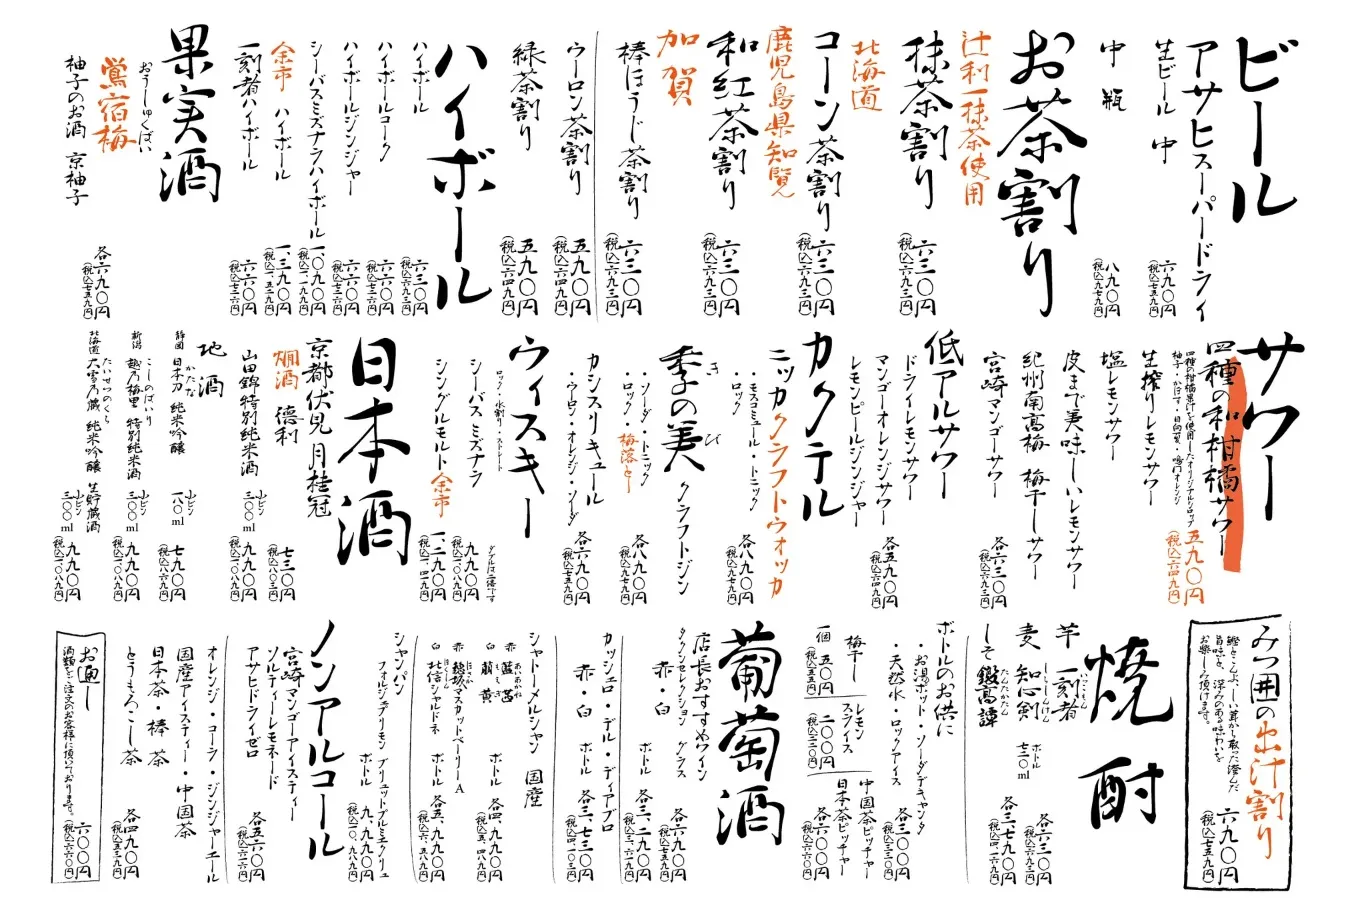 ビール
アサヒスーパードライ
生ビール 中
六九〇円
(税込七五九円)
中瓶
八九〇円
(税込九七九円)
お茶割り
辻利一抹茶使用
抹茶割り
六三〇円
(税込六九三円)
北海道
コーン茶割り
六三〇円
(税込六九三円)
鹿児島県知覧
和紅茶割り
六三〇円
(税込六九三円)
加賀
棒ほうじ茶割り
六三〇円
(税込六九三円)
ウーロン茶割り
五九〇円
(税込六四九円)
緑茶割り
五九〇円
(税込六四九円)
ハイボール
ハイボール
六三〇円
(税込六九三円)
ハイボールコーク
六六〇円
(税込七二六円)
ハイボールジンジャー
六六〇円
(税込七二六円)
シーバスミズナラハイボール
一、〇九〇円
(税込一、一九九円)
余市 ハイボール
一、三九〇円
(税込一、五二九円)
一刻者ハイボール
六六〇円
(税込七三六円)
果実酒
おうしゅくばい
鶯宿梅
柚子のお酒 京柚子
各六九〇円
(税込七五九円)
サワー
四種の和柑橘サワー
四種の柑橘果汁を使用したオリジナルシロップ
柚子・かぼす・日向夏・鳴門オレンジ
五九〇円
(税込六四九円)
生搾りレモンサワー
塩レモンサワー
皮まで美味しいレモンサワー
紀州南高梅 梅干しサワー
宮崎マンゴーサワー
各六三〇円
(税込六九三円)
低アルサワー
ドライレモンサワー
マンゴーオレンジサワー
レモンピールジンジャー
各五九〇円
(税込六四九円)
カクテル
ニッカクラフトウォッカ
・モスコミュール・トニック
・ロック
各八九〇円
(税込九七九円)
季の美 クラフトジン
きのび
・ソーダ・トニック
・ロック・梅落とし
各八九〇円
(税込九七九円)
カシスリキュール
・ウーロン・オレンジ・ソーダ
各六九〇円
(税込七五九円)
ウイスキー
ロック・水割り・ストレート
シーバスミズナラ
九九〇円
(税込一、〇八九円)
シングルモルト余市
一、二九〇円
(税込一、四一九円)
日本酒
京都伏見 月桂冠
燗酒 徳利
七三〇円
(税込八〇三円)
山田錦特別純米酒
小ビン
三〇〇ml
九九〇円
(税込一、〇八九円)
地酒
静岡 日本刀 純米吟醸
かたな
小ビン
一八〇ml
七九〇円
(税込八六九円)
新潟 越乃梅里 特別純米酒
こしのばいり
小ビン
三〇〇ml
九九〇円
(税込一、〇八九円)
北海道 大雪乃蔵 純米吟醸 生貯蔵酒
たいせつのくら
小ビン
三〇〇ml
九九〇円
(税込一、〇八九円)
みつ囲の出汁割り
鰹とこんぶ、しい茸から取った澄んだ
旨味と、深みのある味わいを
お楽しみ頂けます。
六九〇円
(税込七五九円)
焼酎
芋 一刻者
麦 知心剣
しらしんけん
しそ 鍛高譚
たんたかたん
各六三〇円
(税込六九三円)
ボトル
七二〇ml
各三、七九〇円
(税込四、一六九円)
ボトルのお供に
・お湯ポット・ソーダデキャンタ
・天然水・ロックアイス
各三〇〇円
(税込三三〇円)
梅干し
一個 五〇円
(税込五五円)
レモンスライス
二〇〇円
(税込二二〇円)
中国茶ピッチャー
日本茶ピッチャー
各六〇〇円
(税込六六〇円)
葡萄酒
店長おすすめワイン
赤・白 グラス
各六九〇円
(税込七五九円)
ボトル
各三、二九〇円
(税込三、六一九円)
カッシェロ・デル・ディアブロ
赤・白 ボトル
各三、七三〇円
(税込四、一〇三円)
シャトーメルシャン 国産
赤 藍茜
あいあかね
白 萌黄
もえぎ
ボトル
各四、九九〇円
(税込五、四八九円)
赤 穂坂マスカットベーリーA
白 北信シャルドネ
ボトル
各五、九九〇円
(税込六、五八九円)
シャンパン
ボトル
九、九九〇円
(税込一〇、九八九円)
ノンアルコール
宮崎マンゴーアイスティー
ソルティーレモネード
アサヒドライゼロ
各五六〇円
(税込六一六円)
オレンジ・コーラ・ジンジャーエール
国産アイスティー・中国茶
日本茶・棒茶
とうもろこし茶
各四九〇円
(税込五三九円)
お通し
酒類をご注文のお客様に頂いております。
六〇〇円
(税込六六〇円)